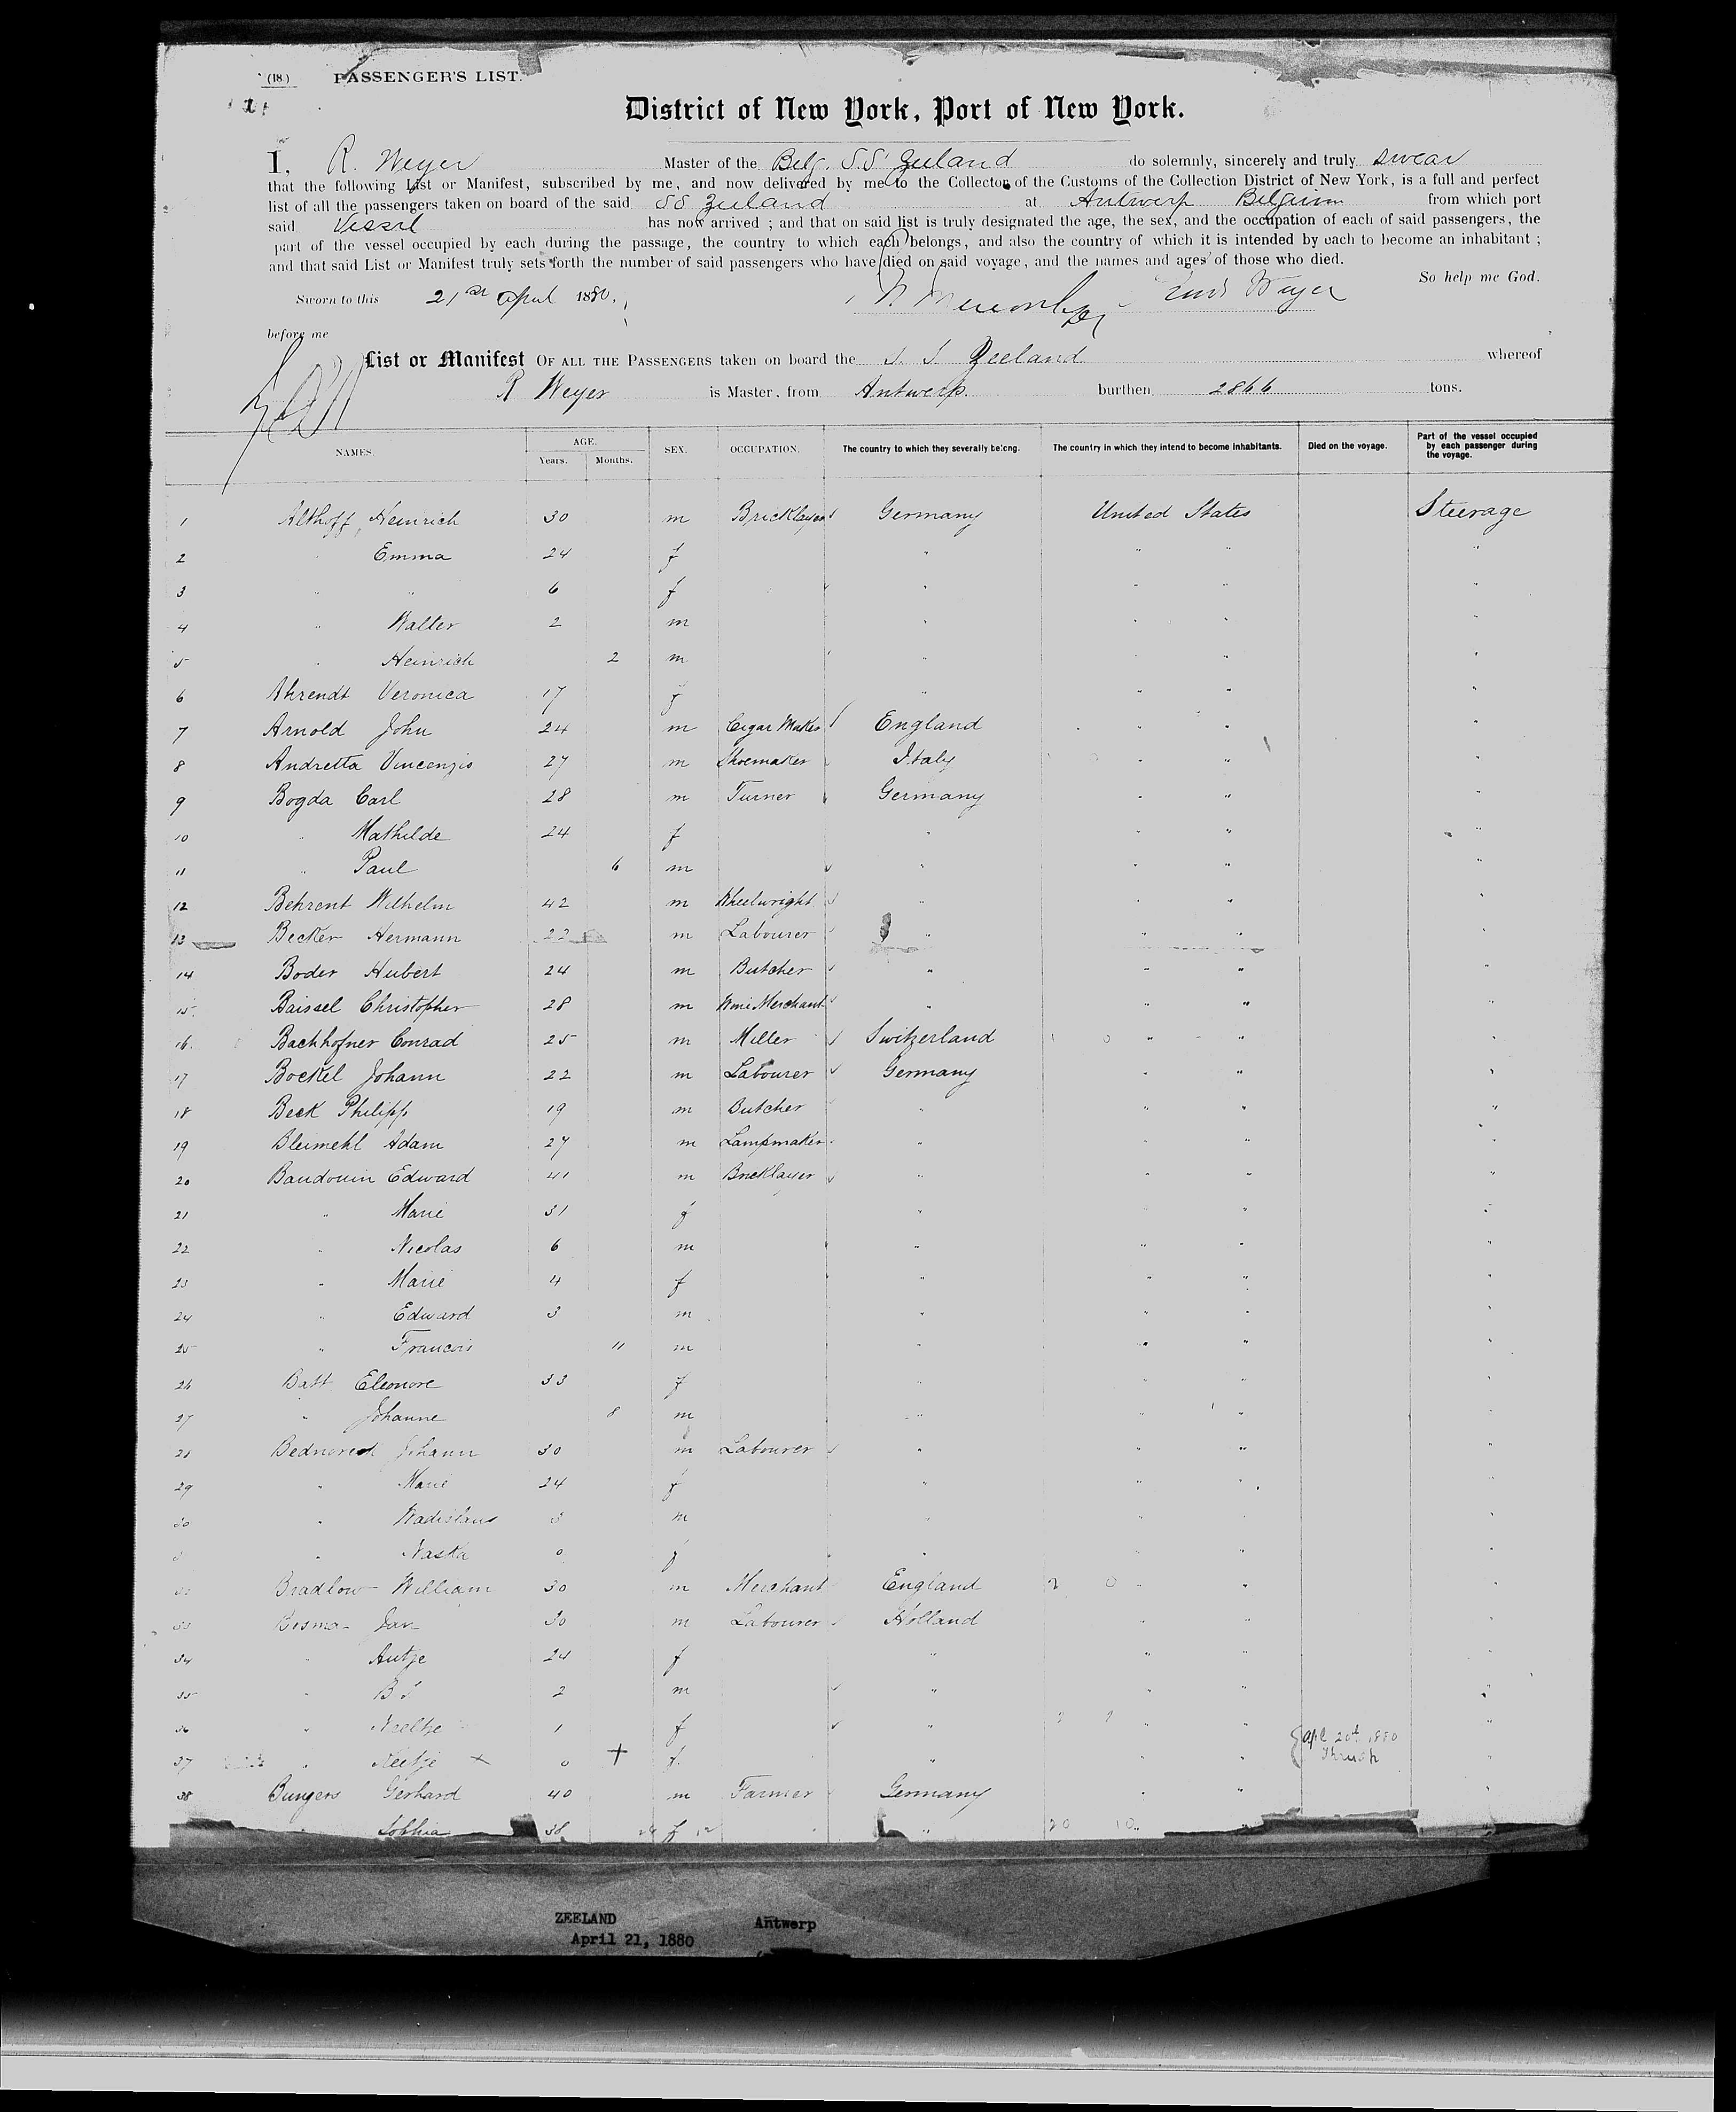 (18.) PASSENGER'S LIST.
District of New York, Port of New York.
I, R. Weyer Master of the Belg. S.S. Zeeland do solemnly, sincerely and truly swear
that the following List or Manifest, subscribed by me, and now delivered by me to the Collector of the Customs of the Collection District of New York, is a full and perfect
list of all the passengers taken on board of the said SS Zeeland at Antwerp Belgium from which port
said Vessel has now arrived ; and that on said list is truly designated the age, the sex, and the occupation of each of said passengers, the
part of the vessel occupied by each during the passage, the country to which each belongs, and also the country of which it is intended by each to become an inhabitant ;
and that said List or Manifest truly sets forth the number of said passengers who have died on said voyage, and the names and ages of those who died.
So help me God.
Sworn to this 21st April 1880, Weyer
before me
List or Manifest OF ALL THE PASSENGERS taken on board the S. S. Zeeland whereof
R Weyer is Master, from Antwerp. burthen 2866 tons.
NAMES. AGE. Years. Months. SEX. OCCUPATION. The country to which they severally belong. The country in which they intend to become inhabitants. Died on the voyage. Part of the vessel occupied by each passenger during the voyage.
1 Althoff, Heinrich 30 m Bricklayer Germany United States Steerage
2 Emma 24 f " " " "
3 " " 6 f " " " "
4 " Walter 2 m " " " "
5 " Heinrich 2 m " " " "
6 Ahrendt Veronica 17 f " " " "
7 Arnold John 24 m Cigar Maker England " " "
8 Andretta Vincenzio 27 m Shoemaker Italy " " "
9 Bogda Carl 28 m Turner Germany " " "
10 " Mathilde 24 f " " " "
11 " Paul 6 m " " " "
12 Behrent Wilhelm 42 m Wheelwright " " " "
13 Becker Hermann 22 m Labourer " " " "
14 Boder Hubert 24 m Butcher " " " "
15 Baissel Christopher 28 m Wine Merchant " " " "
16 Bachhofner Conrad 25 m Miller Switzerland " " "
17 Bockel Johann 22 m Labourer Germany " " "
18 Beck Philipp 19 m Butcher " " " "
19 Blumehl Adam 27 m Lampmaker " " " "
20 Baudouin Edward 41 m Bricklayer " " " "
21 " Marie 31 f " " " "
22 " Nicolas 6 m " " " "
23 " Marie 4 f " " " "
24 " Edward 3 m " " " "
25 " Francois 11 m " " " "
26 Batt Eleonore 33 f " " " "
27 " Johanne 8 m " " " "
28 Johann 30 m Labourer " " " "
29 " Marie 24 f " " " "
30 " Wadislaus m " " " "
" Naska 0 f " " " "
Bradlow William 30 m Merchant England " " "
33 Bosma Jan 30 m Labourer Holland " " "
34 " Antje 24 f " " " "
35 " B S 2 m " " " "
36 " Neeltje 1 f " " " "
37 " × 0 + f. " " " Apl 20th 1880 Thrush "
38 Bungers Gerhard 40 m Farmer Germany " " "
Sophia 38 f " 20 10
ZEELAND Antwerp
April 21, 1880